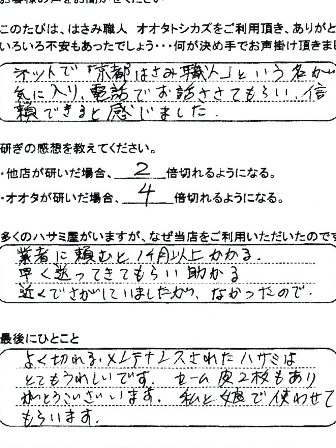 お客様の声をお聞かせください
このたびは、はさみ職人 オオタトシカズをご利用頂き、ありがと
いろいろ不安もあったでしょう・・・何が決め手でお声掛け頂きまし
ネットで「京都はさみ職人」という名が
気に入り、電話でお話させてもらい、信
頼できると感じました。
研ぎの感想を教えてください。
・他店が研いだ場合、 2 倍切れるようになる。
・オオタが研いだ場合、 4 倍切れるようになる。
多くのハサミ屋がいますが、なぜ当店をご利用いただいたのです
業者に頼むと1ヶ月以上かかる。
早く送ってきてもらい助かる
近くでさがしていましたが、なかったので。
最後にひとこと
よく切れる・メンテナンスされたハサミは
とてもうれしいです。セーム皮2枚もあり
がとうございます。私と娘で使わせて
もらいます。